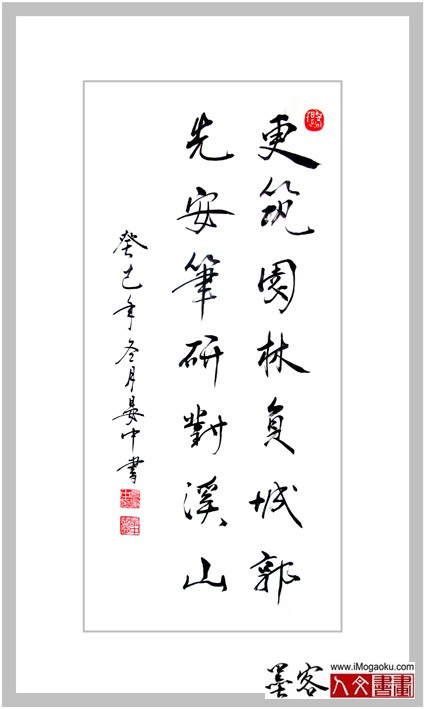 更筑園林負城郭
先安筆研對溪山
癸巳年冬月晏中書
墨客
www.iMogaoku.com
人文書畫